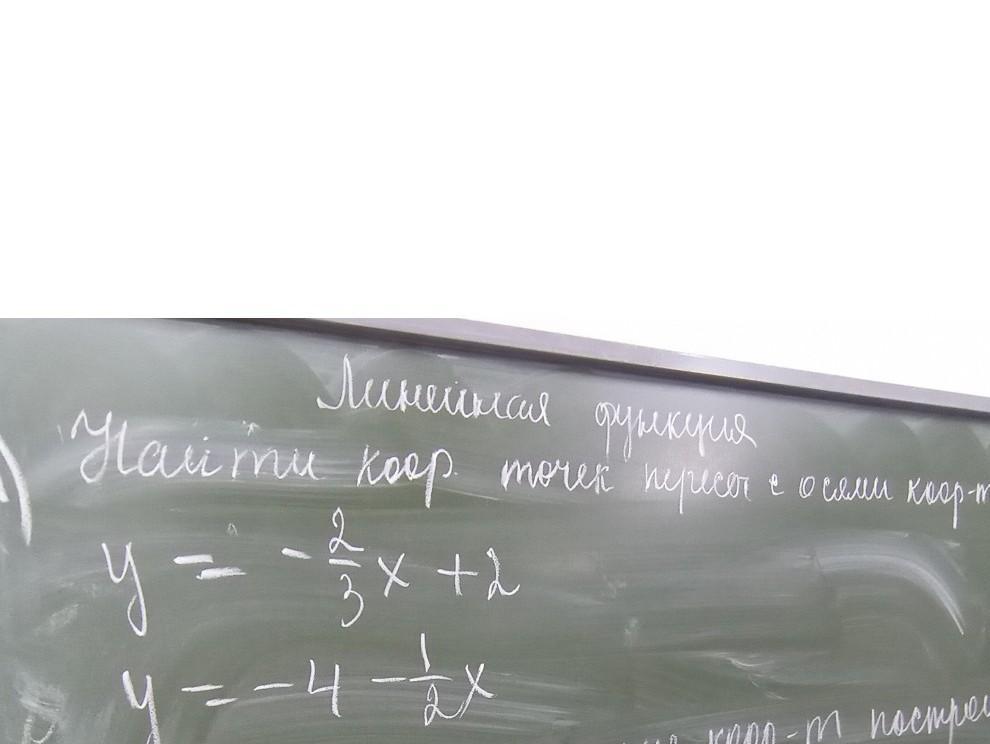 Линейная функция
Найти коор. точек перес с осями коор-т
y = -2/3x + 2
y = -4 - 1/2x
коор-т построи